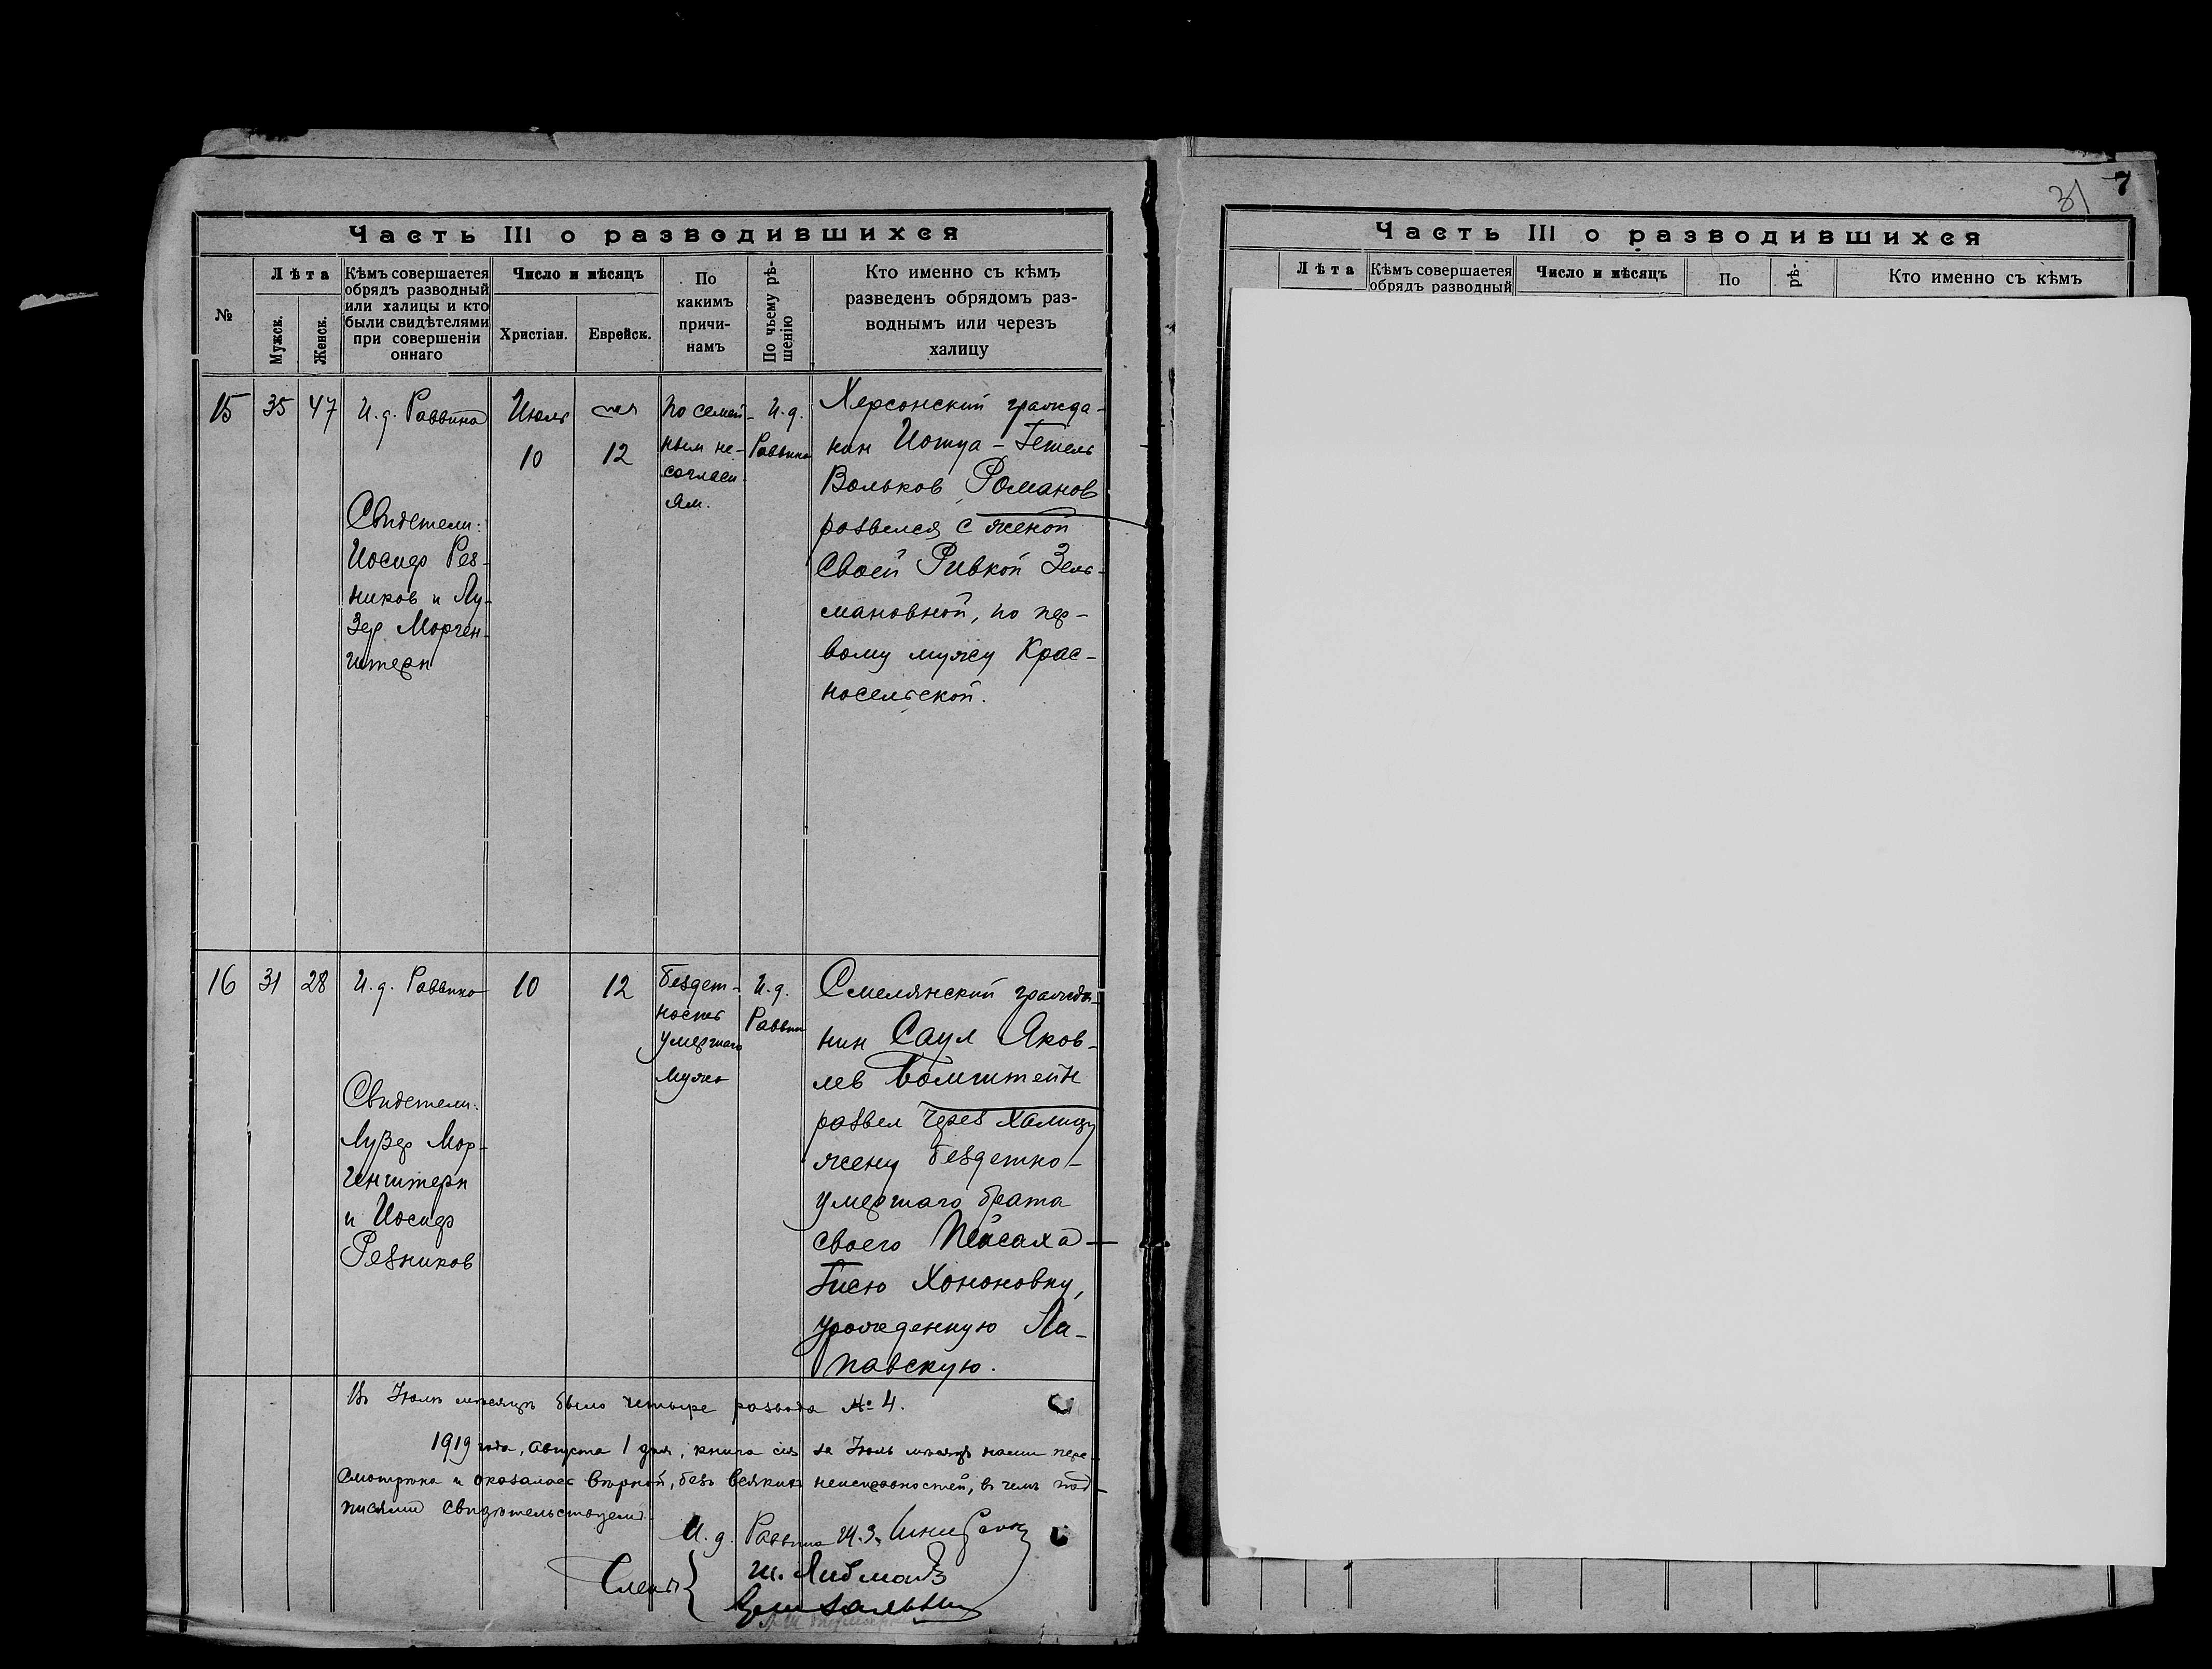 7
31
Часть III о разводившихся
№
Лѣта
Мужск.
Женск.
Кѣмъ совершается
обрядъ разводный
или халицы и кто
были свидѣтелями
при совершеніи
оннаго
Число и мѣсяцъ
Христіан.
Еврейск.
По
какимъ
причи-
намъ
По чьему рѣ-
шенію
Кто именно съ кѣмъ
разведенъ обрядомъ раз-
воднымъ или черезъ
халицу
15
35
47
И.д. Раввина
Свидетели:
Иосиф Рез-
ников и Лу-
зер Морген-
штерн
Июль
10
12
По семей-
ным не-
согласи-
ям.
И.д.
Раввина
Херсонский гражда-
нин Иошуа-Гешель
Вольков Романов
развелся с женой
своей Ривкой Зель-
мановной, по пер-
вому мужу Крас-
носельской.
16
31
28
И.д. Раввина
Свидетели:
Лузер Мор-
генштерн
и Иосиф
Резников
10
12
Бездет-
ность
умершаго
мужа
И.д.
Раввин
Смелянский гражда-
нин Саул Яков-
лев Бомштейн
развел через халицу
жену бездетно-
умершаго брата
своего Пейсаха -
Гисю Хононовну,
урожденную Ла-
павскую.
Въ Іюлѣ мѣсяцѣ было четыре развода № 4.
1919 года, августа 1 дня, книга сія за Іюль мѣсяцъ нами пере-
смотрѣна и оказалась вѣрной, безъ всякихъ неисправностей, в чемъ под-
писями свидѣтельствуемъ.
И.д. Раввина
Члены
Ш. Либман
Часть III о разводившихся
Лѣта
Кѣмъ совершается
обрядъ разводный
Число и мѣсяцъ
По
рѣ-
Кто именно съ кѣмъ